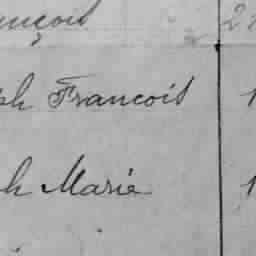 nçois 2
ph Francois 1
h Marie 1